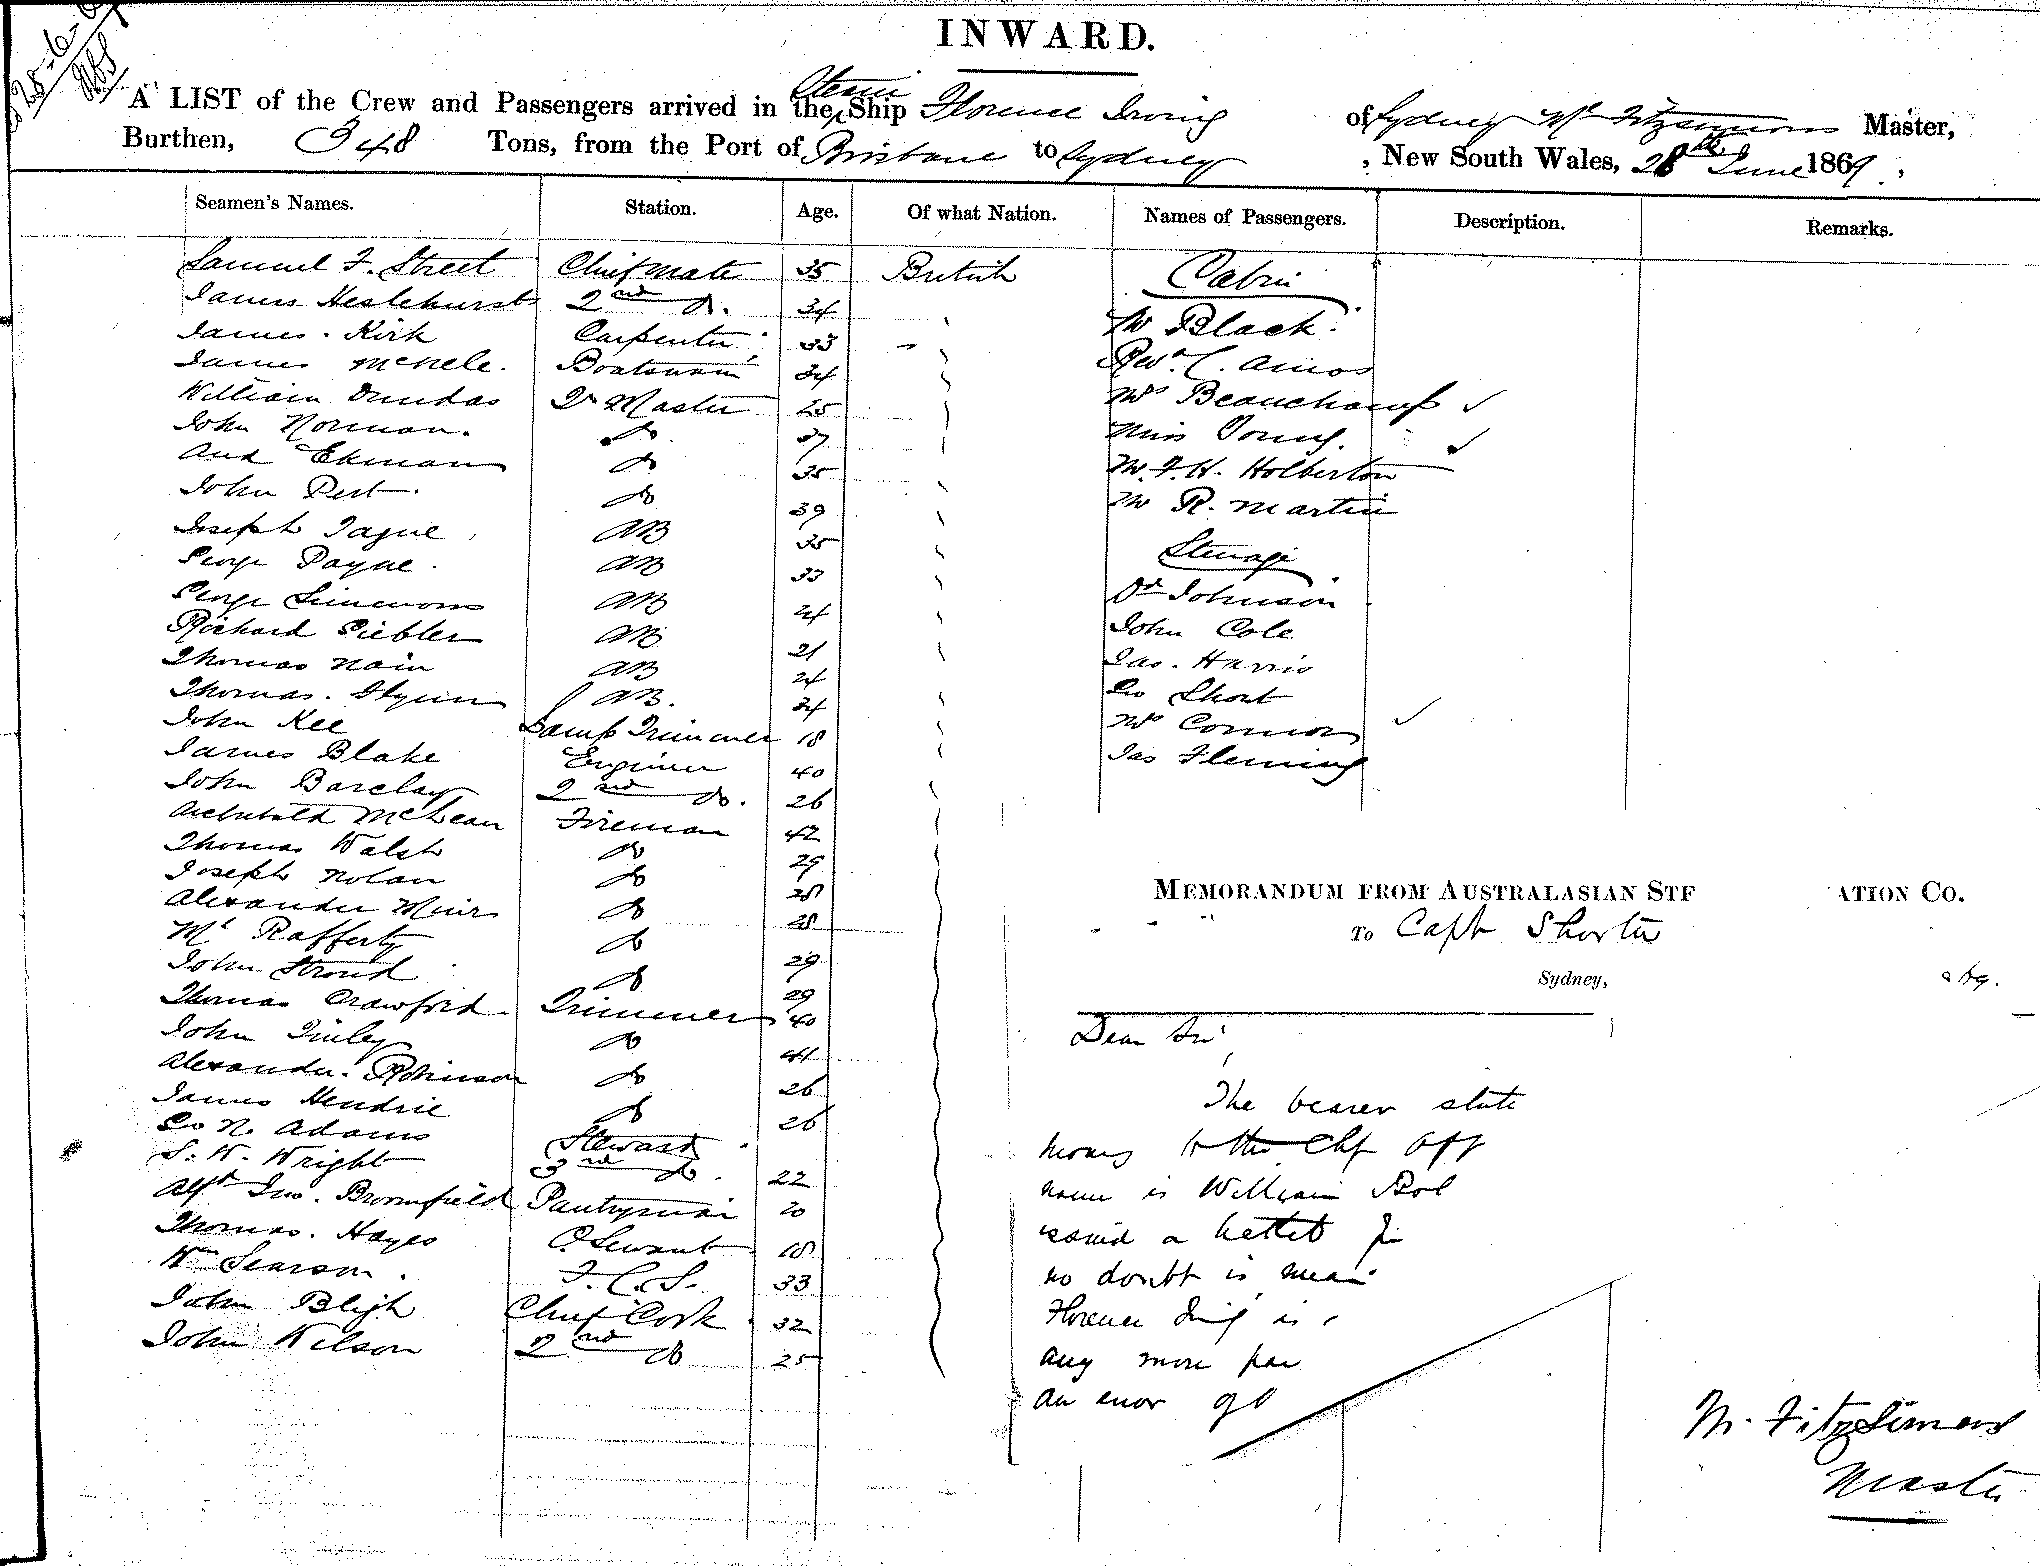 25-6-6
INWARD.
A LIST of the Crew and Passengers arrived in the Steam Ship Florence Irving of Sydney Ml Fitzsimons Master,
Burthen, 348 Tons, from the Port of Brisbane to Sydney, New South Wales, 28th June 1869.
Seamen's Names. Station. Age. Of what Nation. Names of Passengers. Description. Remarks.
Samuel F. Street Chief Mate 35 British Cabin
James Heslehurst 2nd Do. 34 Mr Black
James Kirk Carpenter 33 Revd. C. Amos
James McNele. Boatswain 34 Mrs Beauchamp ✓
William Dundas Qr Master 25 Miss Young. ✓
John Norman. Do 37 Mr. F. H. Holberton
And Ekman Do 35 Mr R. Martin
John Pest. Do 39
Joseph Tague AB 35 Steerage
George Payne. AB 33 Dd Johnson
George Simmons AB 24 John Cole
Richard Siebler AB 21 Jas. Harris
Thomas Nain AB 24 Geo Short
Thomas. Flynn AB. 34 Mrs Connor ✓
John Kee Lamp Trimmer 18 Jas Fleming
James Blake Engineer 40
John Barclay 2nd Do. 26
Archibald McLean Fireman 42
Thomas Walsh Do 29
Joseph Nolan Do 28
Alexander Muir Do 28
Ml Rafferty Do 29
John Stroud Do 29
Thomas Crawford Trimmer 40
John Finley Do 41
Alexander. Robinson Do 26
James Hendrie Do 26
Geo N. Adams Steward
S. W. Wright 3rd Do. 22
Alfd Jno. Broomfield Pantryman 20
Thomas. Hayes O. Servant 18
Wm Searson. F. C. S. 33
John Bligh Chief Cook 32
John Wilson 2nd Do 25
MEMORANDUM FROM AUSTRALASIAN STE ATION CO.
To Capt Shorter
Sydney,
Dear Sir,
The bearer state
money to the Chf Off
name is William Bol
issued a ticket
no doubt is mean
Florence Irving is
any more par
an error
M. FitzSimons
Master